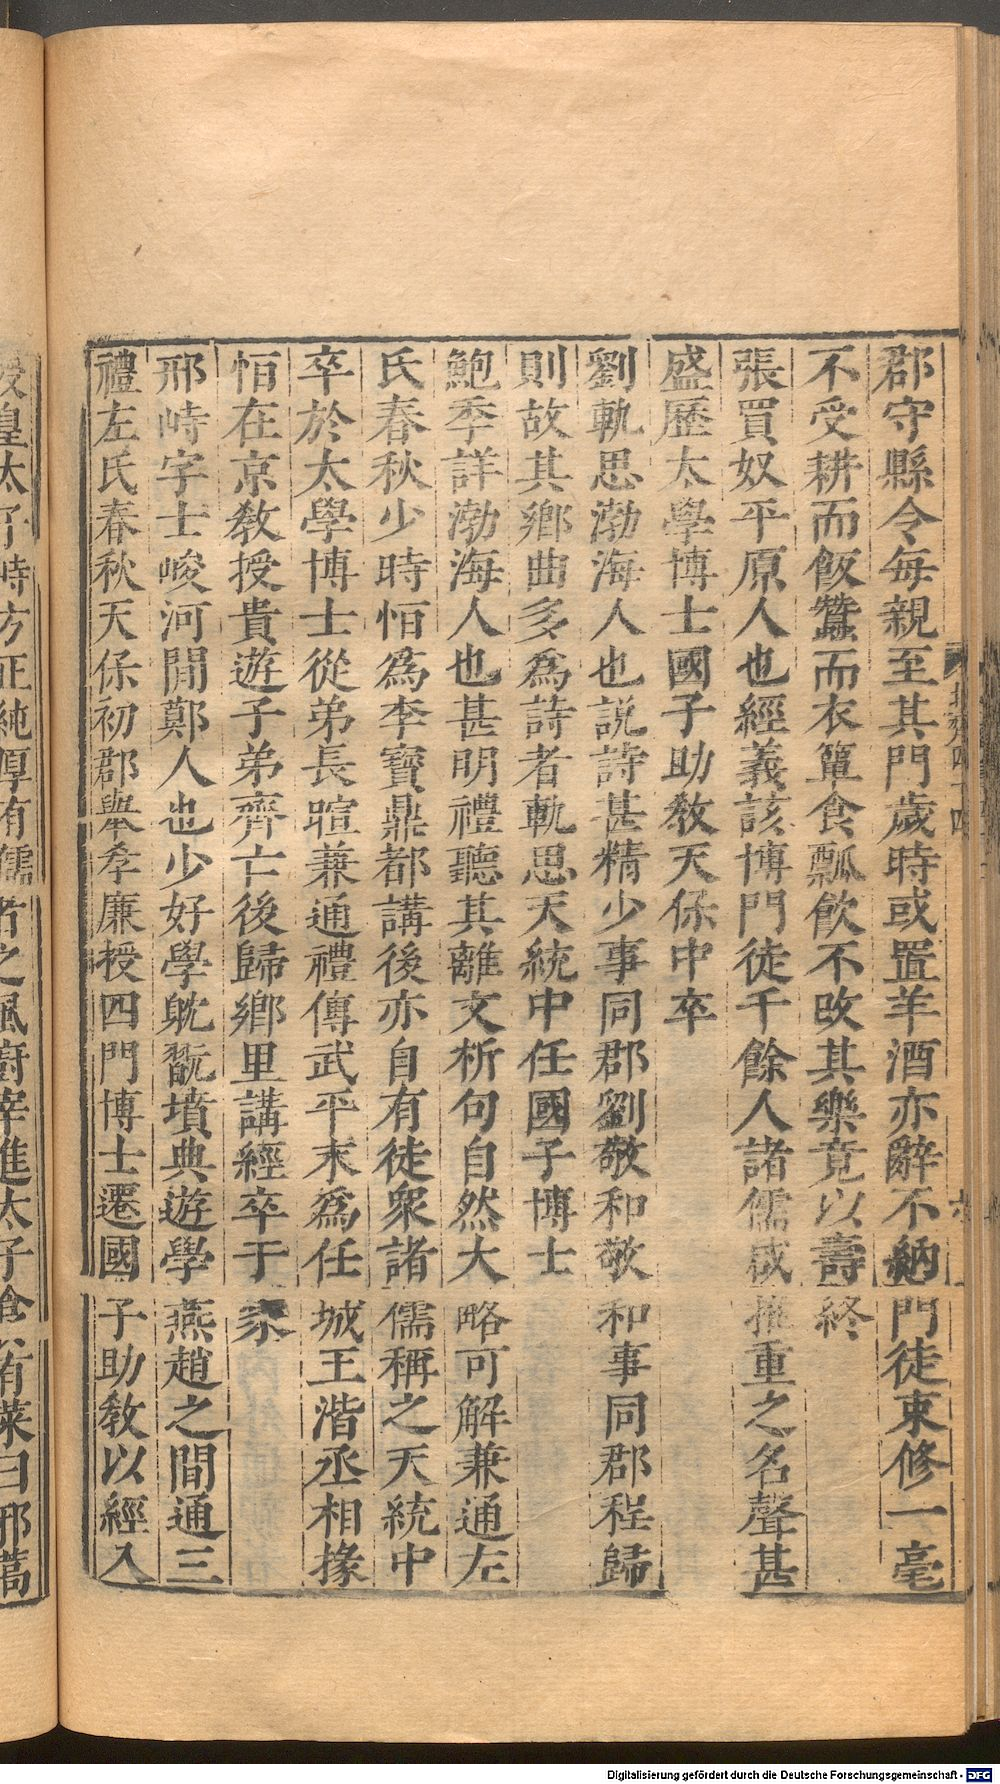 郡守縣令每親至其門歲時或置羊酒亦辭不納門徒束修一毫
不受耕而飯蠶而衣簞食瓢飲不改其樂竟以壽終
張買奴平原人也經義該博門徒千餘人諸儒咸推重之名聲甚
盛歷太學博士國子助教天保中卒
劉軌思渤海人也説詩甚精少事同郡劉敬和敬和事同郡程歸
則故其鄉曲多爲詩者軌思天統中任國子博士
鮑季詳渤海人也甚明禮聽其離文析句自然大略可解兼通左
氏春秋少時恒爲李寶鼎都講後亦自有徒衆諸儒稱之天統中
卒於太學博士從弟長暄兼通禮傳武平末爲任城王湝丞相掾
恒在京教授貴遊子弟齊亡後歸鄉里講經卒于家
邢峙字士峻河間鄭人也少好學躭翫墳典遊學燕趙之間通三
禮左氏春秋天保初郡舉孝廉授四門博士遷國子助教以經入
授皇太子峙方正純厚有儒者之風廚宰進太子食有菜曰邪蒿
Digitalisierung gefördert durch die Deutsche Forschungsgemeinschaft - DFG